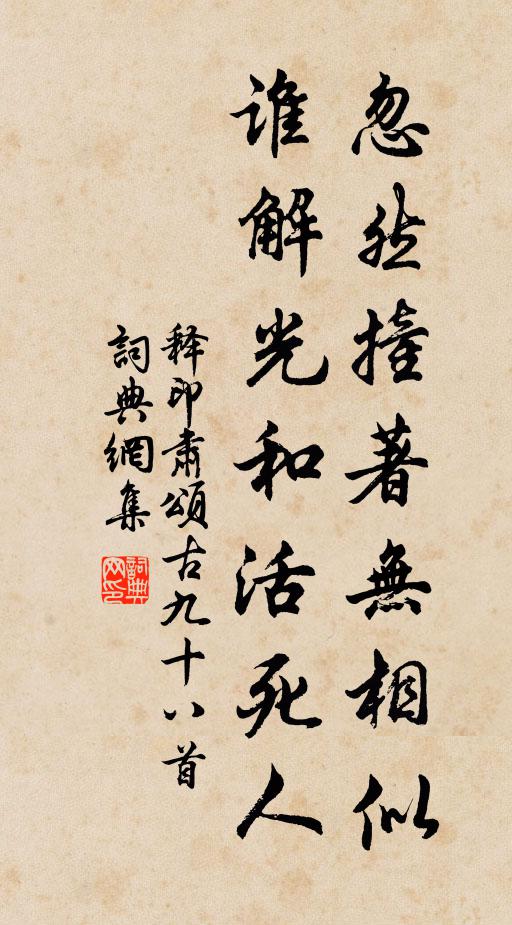 忽然撞著無相似
誰解光和活死人
释印肅頌古九十八首
詞典網集
詞典网印